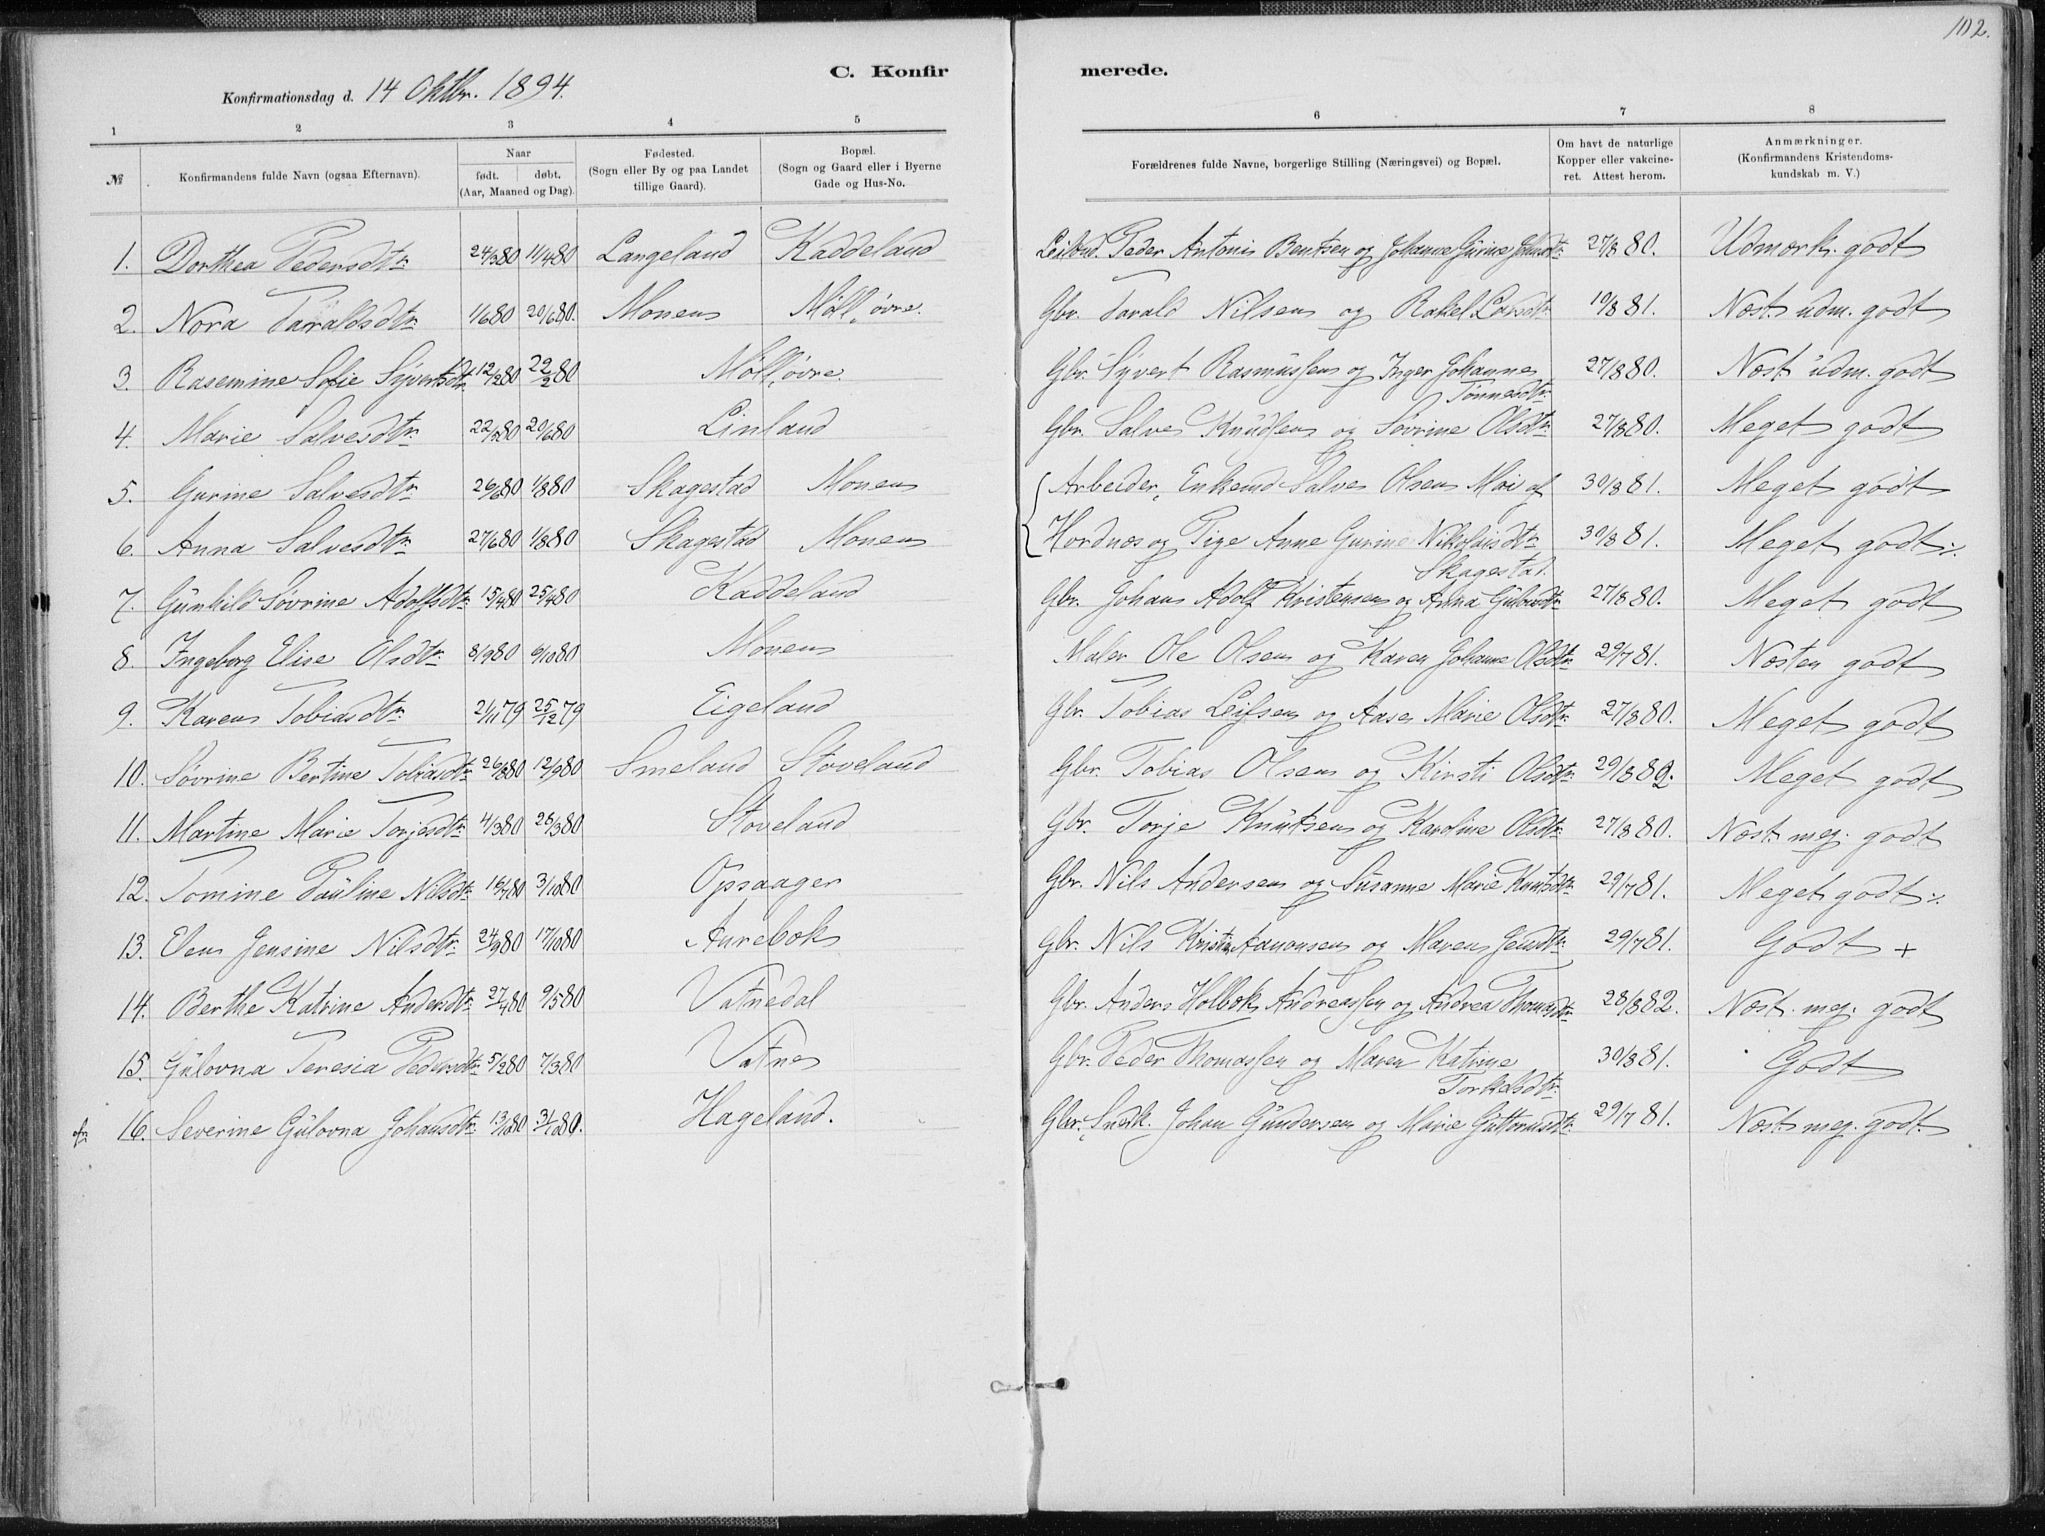 102.
C. Konfirmerede.
Konfirmationsdag d. 14 Oktbr. 1894.
1 2 3 4 5 6 7 8
№ Konfirmandens fulde Navn (ogsaa Efternavn). Naar født. døbt. (Aar, Maaned og Dag). Fødested. (Sogn eller By og paa Landet tillige Gaard). Bopæl. (Sogn og Gaard eller i Byerne Gade og Hus-No. Forældrenes fulde Navne, borgerlige Stilling (Næringsvei) og Bopæl. Om havt de naturlige Kopper eller vakcineret. Attest herom. Anmærkninger. (Konfirmandens Kristendomskundskab m. V.)
1. Dorthea Pedersdtr. 24/3 80 11/4 80 Langeland Kaddeland Peder Antonis Bentsen og Johanne Gurine 27/8 80. Udmærk. godt
2. Nora Taraldsdtr. 1/6 80 20/6 80. Monen Møll, øvre. Gbr. Tarald Nilsen og Rakel Larsdtr. 19/8 81. Næst. udm. godt
3. Rasemine Sofie Syvertsdtr. 12/2 80 22/2 80 Møll, øvre. Gbr. Syvert Rasmussen og Inger Johanne Tønnesdtr. 27/8 80. Næst. udm. godt
4. Marie Salvesdtr. 22/5 80 20/6 80 Linland Gbr. Salve Knudsen og Søvrine Olsdtr. 27/8 80. Meget godt
5. Gurine Salvesdtr. 26/6 80 1/8 80 Skagestad Monen Arbeider, Enkemd Salve Olsen Moi af 30/8 81. Meget godt
6. Anna Salvesdtr. 27/6 80 1/8 80 Skagestad Monen Hordnes og Pige Anne Gurine Nikolaisdtr. Skagestad. 30/8 81. Meget godt
7. Gunhild Søvrine Adolfsdtr. 15/4 80 25/4 80 Kaddeland Gbr. Johan Adolf Kristensen og Anna 27/8 80. Meget godt
8. Ingeborg Elise Olsdtr. 8/9 80 6/10 80 Monen Maler Ole Olsen og Karen Johanne Olsdtr. 29/7 81. Næsten godt
9. Karen Tobiasdtr. 21/11 79 25/12 79 Eigeland Gbr. Tobias Leifsen og Aase Marie Olsdtr. 27/8 80. Meget godt
10. Søvrine Bertine Tobiasdtr. 26/8 80 12/9 80 Smeland Støveland Gbr. Tobias Olsen og Kirsti Olsdtr. 29/8 82. Meget godt
11. Martine Marie Torjesdtr. 4/3 80 26/3 80 Støveland Gbr. Torje Knutsen og Karoline Olsdtr. 27/8 80. Næst. meg. godt
12. Tomine Pauline Nilsdtr. 16/7 80 3/10 80 Opsaager Gbr. Nils Andersen og Susanne Marie Knutsdtr. 29/7 81. Meget godt
13. Elen Jensine Nilsdtr. 24/9 80 17/10 80 Aurebok Gbr. Nils Kristian Aanonsen og Maren Jensdtr. 29/7 81. Godt +
14. Berthe Katrine Andersdtr. 27/4 80 9/5 80 Vatnedal Gbr. Anders Holbok Andreassen og Andrea Thomasdtr. 28/8 82. Næst. meg. godt
15. Gulovna Teresia Pedersdtr. 5/2 80 7/3 80 Vatne Gbr. Peder Thomassen og Maren Katrine Torkelsdtr. 30/8 81. Godt
16. Severine Gulovna Johansdtr. 13/10 80 31/10 80. Hageland. Gbr., Snedk. Johan Gundersen og Marie Guttormsdtr. 29/7 81. Næst. meg. godt.